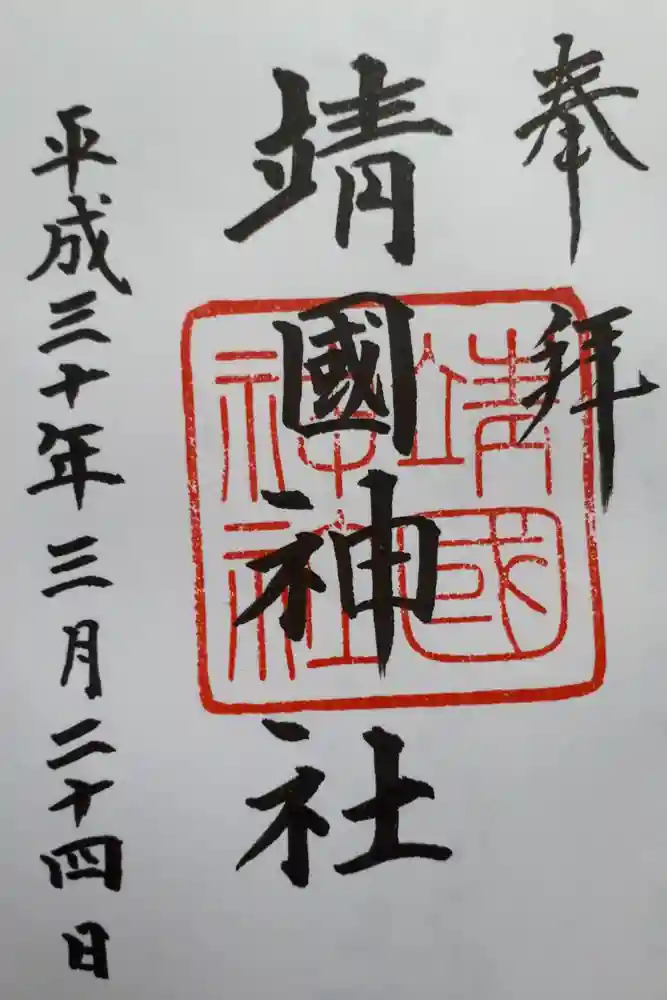 奉拝
靖國神社
靖國神社
平成三十年三月二十四日